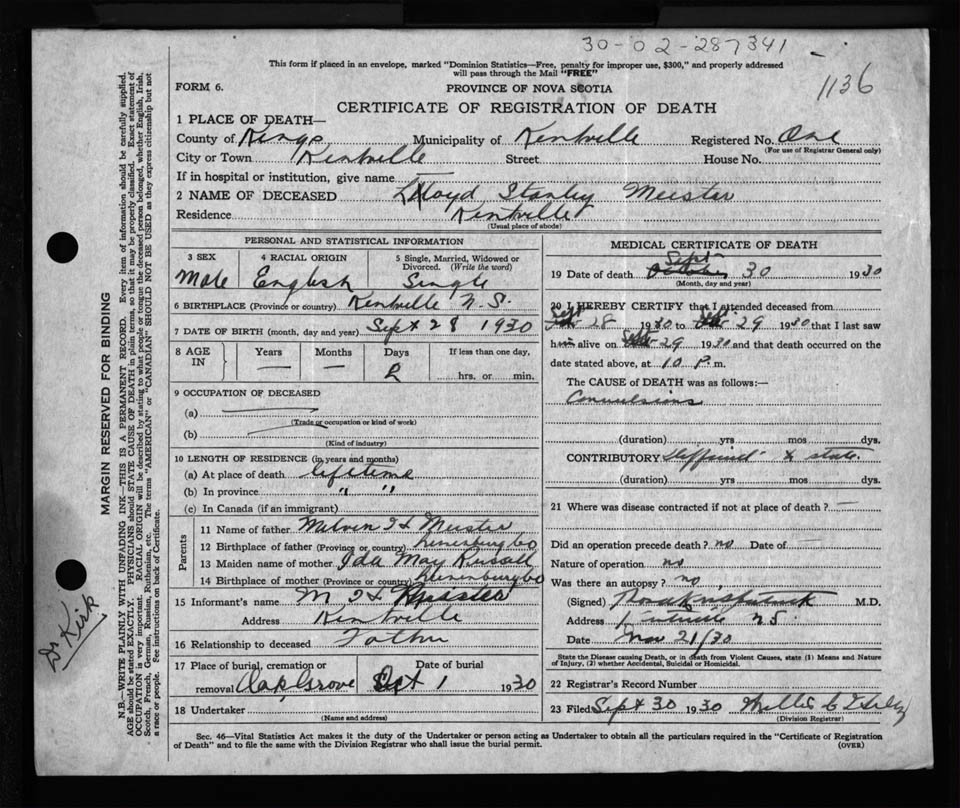 30-02-287341
1136
This form if placed in an envelope, marked "Dominion Statistics—Free, penalty for improper use, $300," and properly addressed
will pass through the Mail "FREE"
FORM 6. PROVINCE OF NOVA SCOTIA
CERTIFICATE OF REGISTRATION OF DEATH
1 PLACE OF DEATH—
County of Kings Municipality of Kentville Registered No. One
(For use of Registrar General only)
City or Town Kentville Street House No.
If in hospital or institution, give name
2 NAME OF DECEASED Lloyd Stanley Meister
Residence Kentville
(Usual place of abode)
PERSONAL AND STATISTICAL INFORMATION
3 SEX 4 RACIAL ORIGIN 5 Single, Married, Widowed or
Divorced. (Write the word)
Male English Single
6 BIRTHPLACE (Province or country) Kentville N.S.
7 DATE OF BIRTH (month, day and year) Sept 28 1930
8 AGE IN Years Months Days If less than one day,
— — 2 hrs. or min.
9 OCCUPATION OF DECEASED
(a)
(Trade or occupation or kind of work)
(b)
(Kind of industry)
10 LENGTH OF RESIDENCE (in years and months)
(a) At place of death lifetime
(b) In province " "
(c) In Canada (if an immigrant)
Parents
11 Name of father Melvin Meister
12 Birthplace of father (Province or country) Lunenburg Co
13 Maiden name of mother Ida May Russell
14 Birthplace of mother (Province or country) Lunenburg Co
15 Informant's name M Meister
Address Kentville
16 Relationship to deceased Father
17 Place of burial, cremation or Date of burial
removal Oak Grove Oct 1 1930
18 Undertaker
(Name and address)
MEDICAL CERTIFICATE OF DEATH
19 Date of death Sept October 30 1930
(Month, day and year)
20 I HEREBY CERTIFY that I attended deceased from
Sept 28 1930 to Sept 29 1930 that I last saw
him alive on Sept 29 1930 and that death occurred on the
date stated above, at 10 P. m.
The CAUSE of DEATH was as follows:—
Convulsions
(duration) yrs mos dys.
CONTRIBUTORY
(duration) yrs mos dys.
21 Where was disease contracted if not at place of death?
Did an operation precede death? no Date of
Nature of operation no
Was there an autopsy? no
(Signed) M.D.
Address Kentville N.S.
Date Nov 21/30
State the Disease causing Death, or in death from Violent Causes, state (1) Means and Nature
of Injury, (2) whether Accidental, Suicidal or Homicidal.
22 Registrar's Record Number
23 Filed Sept 30 1930
(Division Registrar)
Sec. 46—Vital Statistics Act makes it the duty of the Undertaker or person acting as Undertaker to obtain all the particulars required in the "Certificate of Registration
of Death" and to file the same with the Division Registrar who shall issue the burial permit. (OVER)
MARGIN RESERVED FOR BINDING
N.B.—WRITE PLAINLY WITH UNFADING INK—THIS IS A PERMANENT RECORD. Every item of information should be carefully supplied.
AGE should be stated EXACTLY. PHYSICIANS should STATE CAUSE OF DEATH in plain terms, so that it may be properly classified. Exact statement of
OCCUPATION is very important. RACIAL ORIGIN will be described by stating to what people or tongue the deceased person belonged, whether English, Irish,
Scotch, French, German, Russian, Ruthenian, etc. The terms "AMERICAN" or "CANADIAN" SHOULD NOT BE USED as they express citizenship but not
a race or people. See instructions on back of Certificate.
Dr Kirk